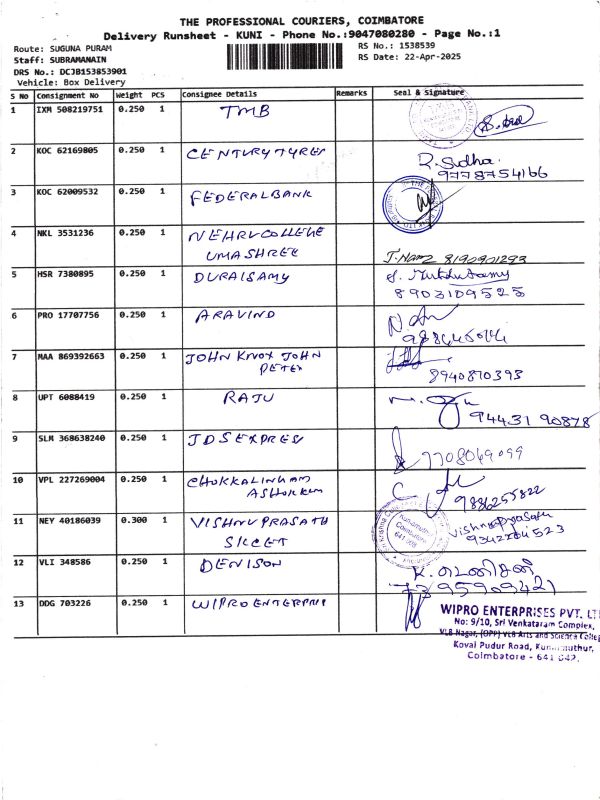 THE PROFESSIONAL COURIERS, COIMBATORE
Delivery Runsheet - KUNI - Phone No.:9047080280 - Page No.:1
Route: SUGUNA PURAM RS No.: 1538539
Staff: SUBRAMANAIN RS Date: 22-Apr-2025
DRS No.: DCJB153853901
Vehicle: Box Delivery
S No Consignment No Weight PCS Consignee Details Remarks Seal & Signature
1 IXM 508219751 0.250 1 TMB
2 KOC 62169805 0.250 1 CENTURY TYRES R. Sudha
9778754166
3 KOC 62009532 0.250 1 FEDERAL BANK
4 NKL 3531236 0.250 1 NEHRU COLLEGE
UMASHREE 8190901293
5 HSR 7380895 0.250 1 DURAISAMY
8903109525
6 PRO 17707756 0.250 1 ARAVIND
7 MAA 869392663 0.250 1 JOHN KNOX JOHN
PETER 8940870393
8 UPT 6088419 0.250 1 RAJU
94431 90878
9 SLM 368638240 0.250 1 JDS EXPRES 7708069099
10 VPL 227269004 0.250 1 CHOKKALINGAM
ASHOKKUM 9886255822
11 NEY 40186039 0.300 1 VISHNU PRASATH Vishnuprasath
SKCET 9342284523
12 VLI 348586 0.250 1 DENISON K. டெனிசன்
7395909421
13 DDG 703226 0.250 1 WIPRO ENTERPRI
WIPRO ENTERPRISES PVT. LT
No: 9/10, Sri Venkataram Complex,
VLB Nagar, (OPP) VLB Arts and Science Colleg
Kovai Pudur Road, Kuniamuthur,
Coimbatore - 641 042.